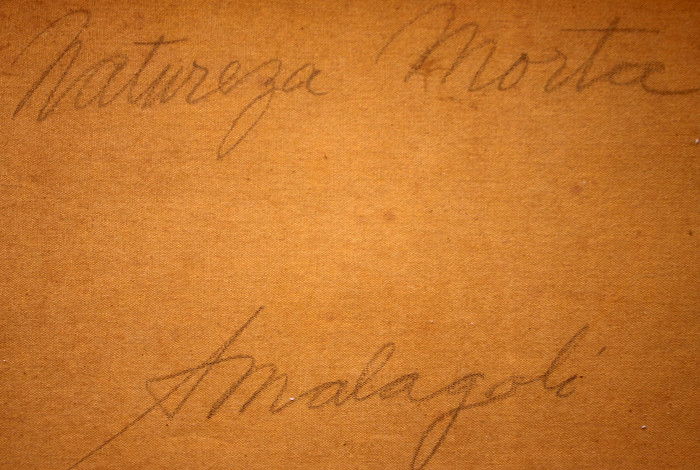 Natureza Morta
AMalagoli